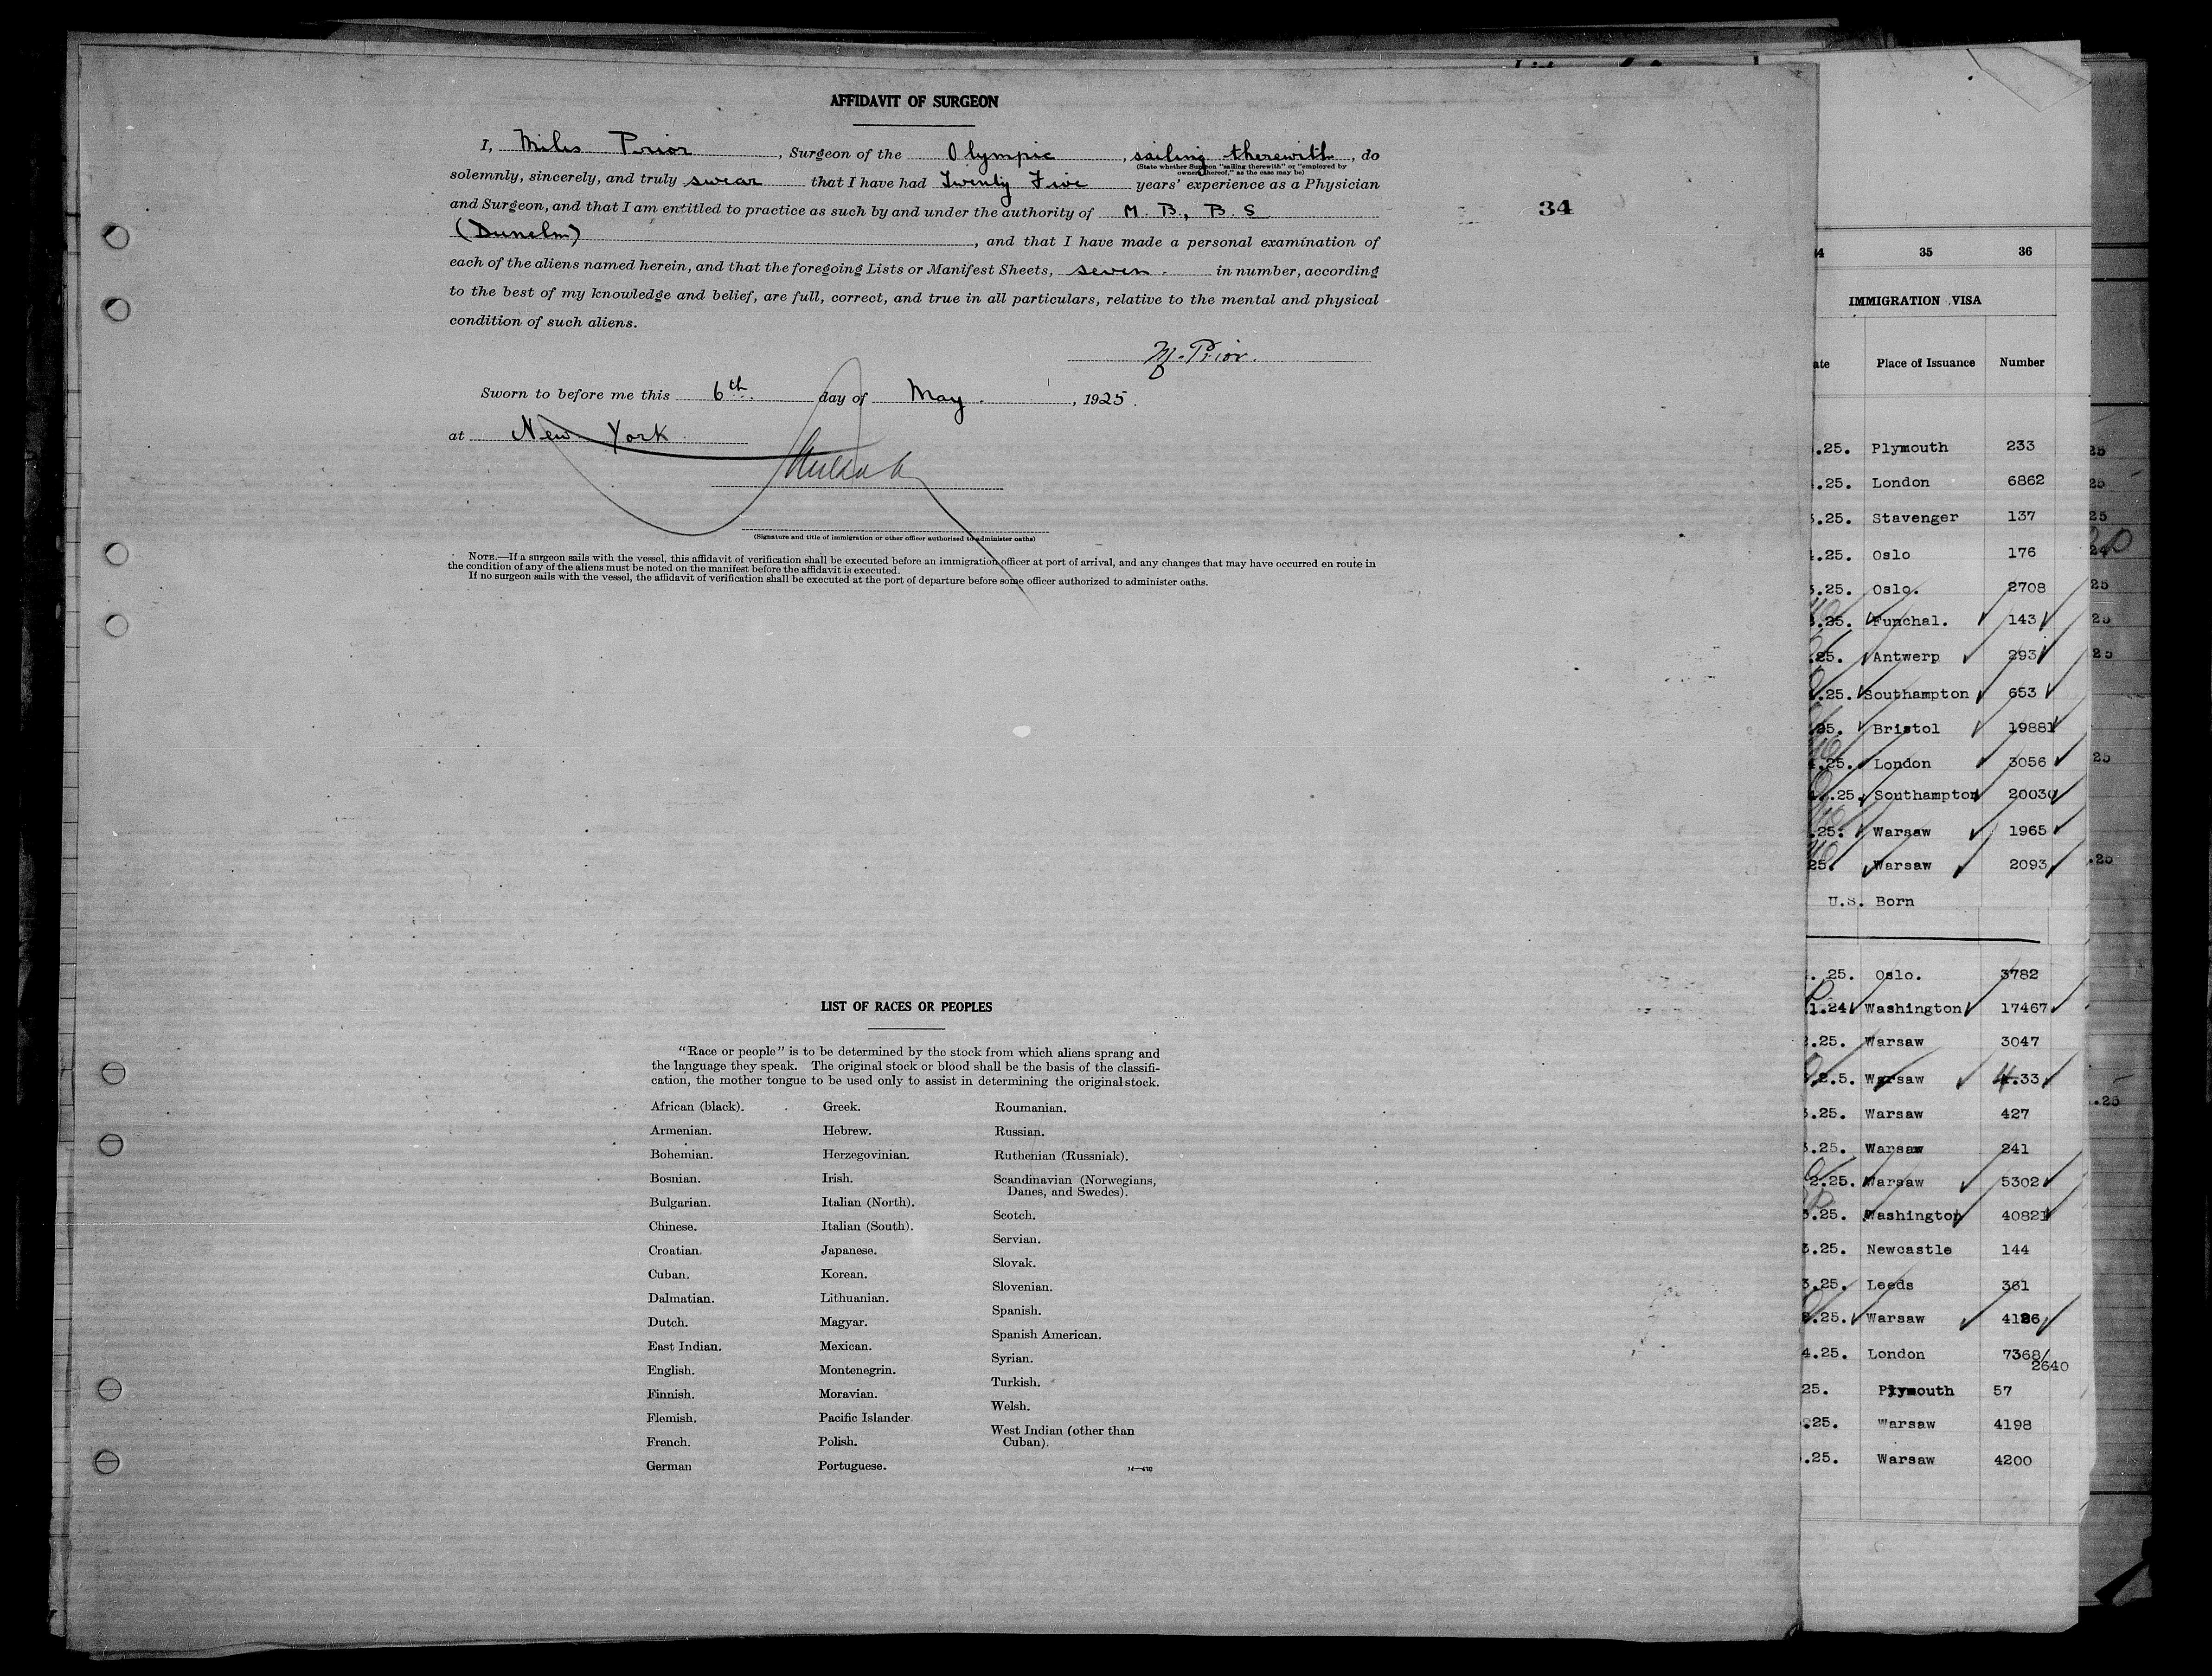 AFFIDAVIT OF SURGEON
I, Miles Prior, Surgeon of the Olympic, sailing therewith, do
(State whether Surgeon "sailing therewith" or "employed by
owners thereof," as the case may be)
solemnly, sincerely, and truly swear that I have had Twenty Five years' experience as a Physician
and Surgeon, and that I am entitled to practice as such by and under the authority of M. B., B. S
(Dunelm), and that I have made a personal examination of
each of the aliens named herein, and that the foregoing Lists or Manifest Sheets, seven. in number, according
to the best of my knowledge and belief, are full, correct, and true in all particulars, relative to the mental and physical
condition of such aliens.
M. Prior.
Sworn to before me this 6th. day of May. , 1925.
at New York
(Signature and title of immigration or other officer authorized to administer oaths)
NOTE.—If a surgeon sails with the vessel, this affidavit of verification shall be executed before an immigration officer at port of arrival, and any changes that may have occurred en route in
the condition of any of the aliens must be noted on the manifest before the affidavit is executed.
If no surgeon sails with the vessel, the affidavit of verification shall be executed at the port of departure before some officer authorized to administer oaths.
34
LIST OF RACES OR PEOPLES
"Race or people" is to be determined by the stock from which aliens sprang and
the language they speak. The original stock or blood shall be the basis of the classifi-
cation, the mother tongue to be used only to assist in determining the original stock.
African (black).
Armenian.
Bohemian.
Bosnian.
Bulgarian.
Chinese.
Croatian.
Cuban.
Dalmatian.
Dutch.
East Indian.
English.
Finnish.
Flemish.
French.
German
Greek.
Hebrew.
Herzegovinian.
Irish.
Italian (North).
Italian (South).
Japanese.
Korean.
Lithuanian.
Magyar.
Mexican.
Montenegrin.
Moravian.
Pacific Islander
Polish.
Portuguese.
Roumanian.
Russian.
Ruthenian (Russniak).
Scandinavian (Norwegians,
Danes, and Swedes).
Scotch.
Servian.
Slovak.
Slovenian.
Spanish.
Spanish American.
Syrian.
Turkish.
Welsh.
West Indian (other than
Cuban).
35 36
IMMIGRATION VISA
Place of Issuance Number
.25. Plymouth 233
.25. London 6862
.25. Stavenger 137
.25. Oslo 176
.25. Oslo. 2708
.25. Funchal. 143
.25. Antwerp 293
.25. Southampton 653
.25. Bristol 19881
.25. London 3056
.25. Southampton 20030
.25. Warsaw 1965
25. Warsaw 2093
U.S. Born
. 25. Oslo. 3782
1.24 Washington 17467
.25. Warsaw 3047
2.5. Warsaw 4.33
.25. Warsaw 427
.25. Warsaw 241
2.25. Warsaw 5302
3.25. Washington 40821
3.25. Newcastle 144
3.25. Leeds 361
.25. Warsaw 4126
4.25. London 7368/
2640
25. Plymouth 57
.25. Warsaw 4198
.25. Warsaw 4200